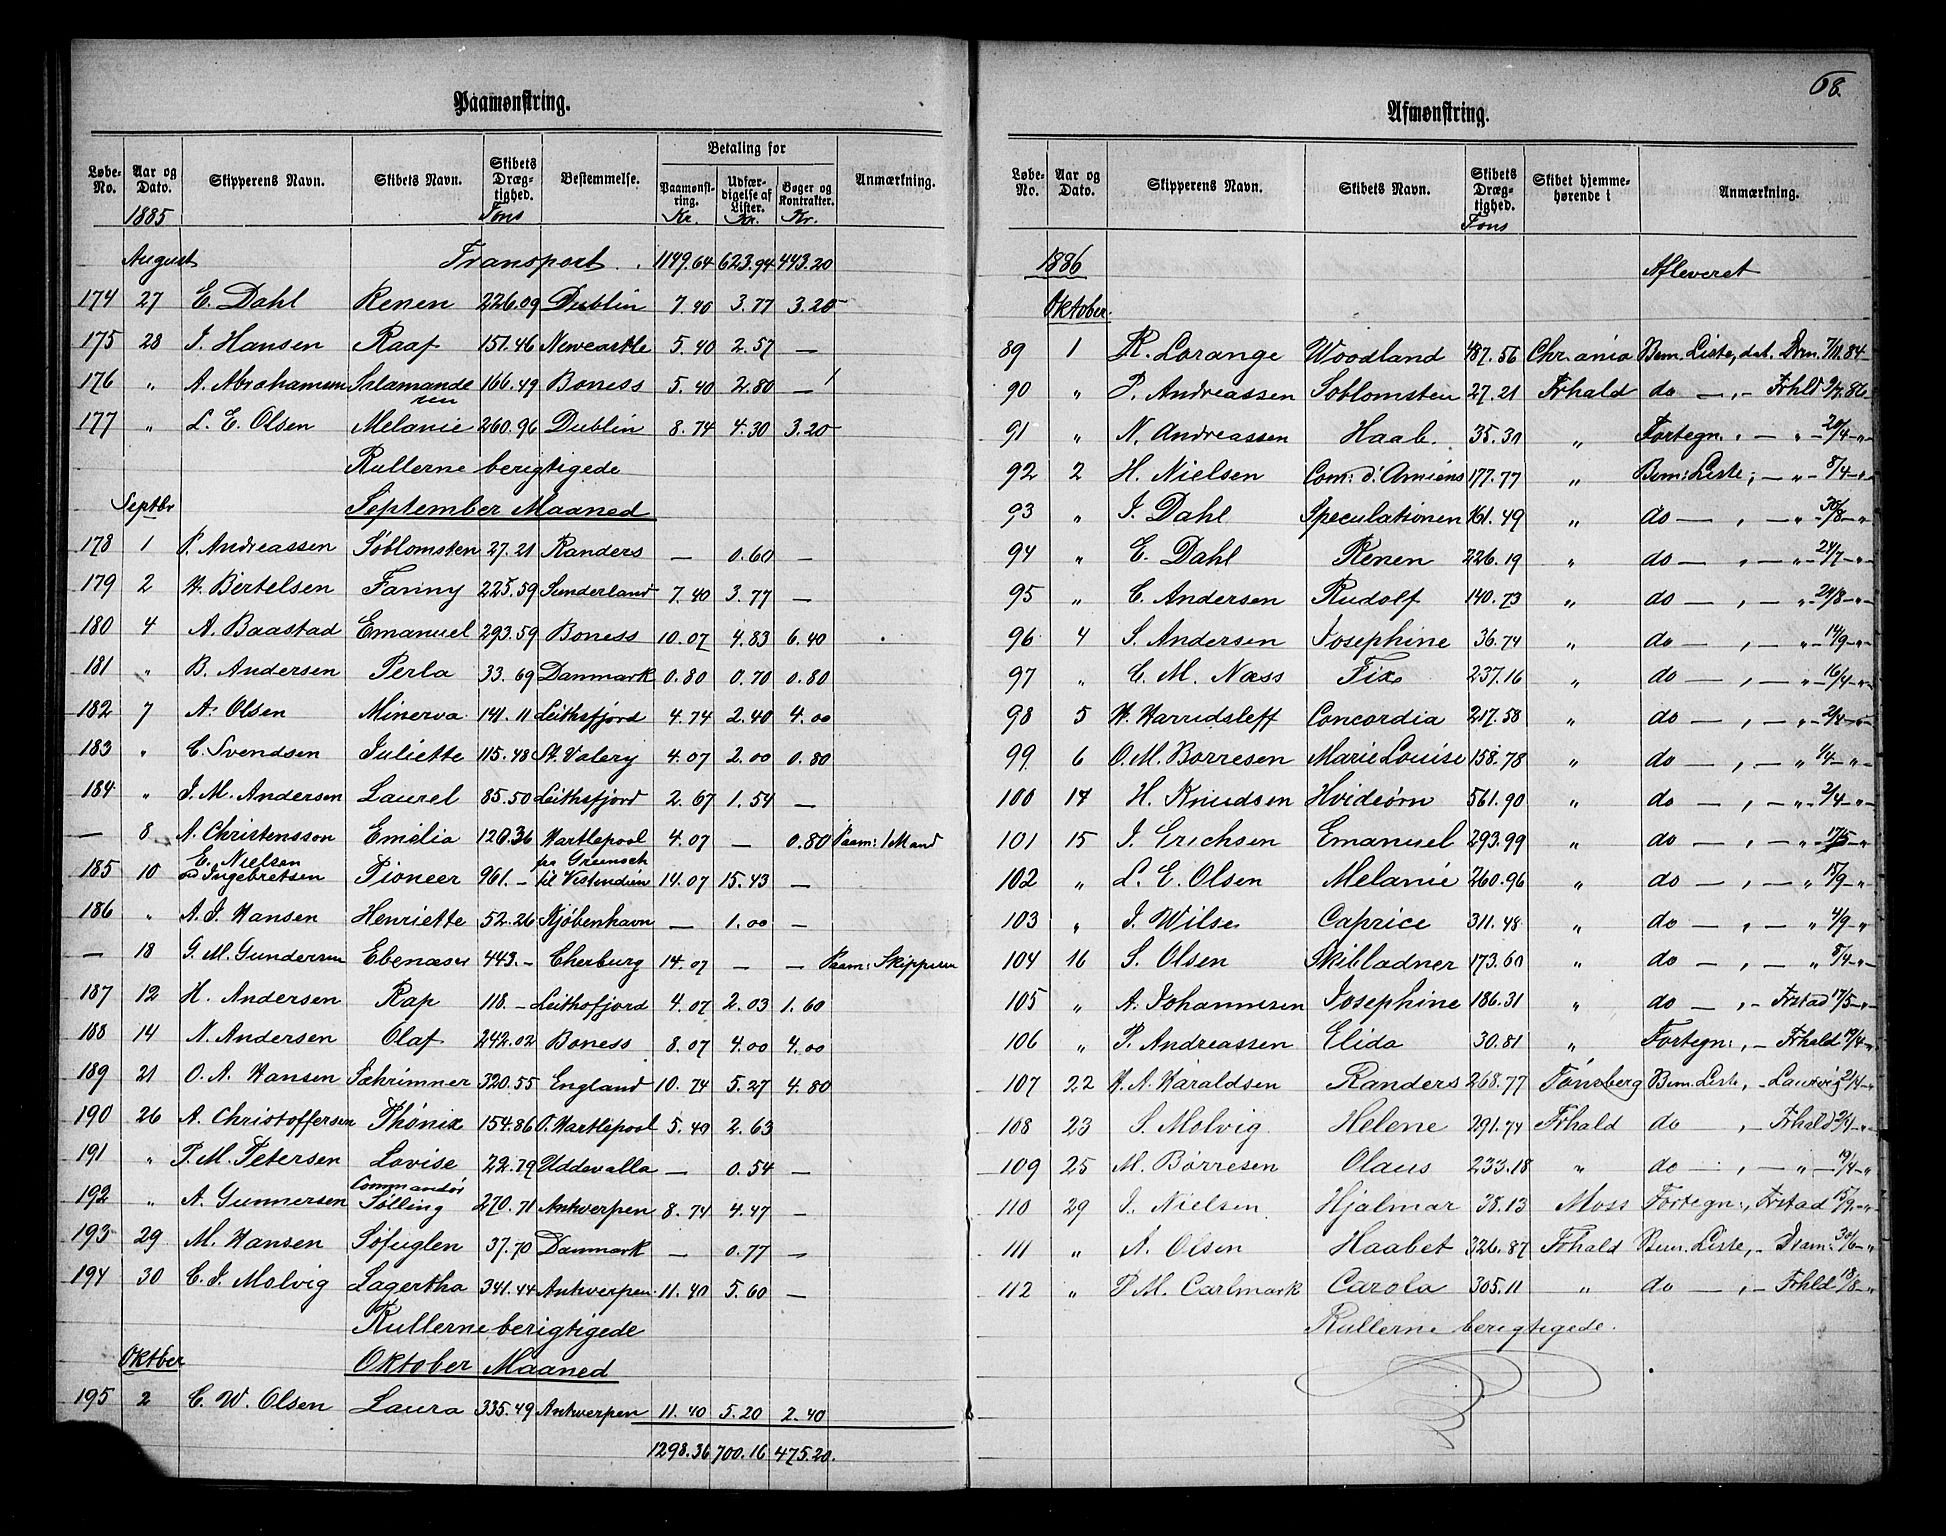 68.
Paamønstring.
Løbe-No. Aar og Dato. Skipperens Navn. Skibets Navn. Skibets Dræg-tighed. Bestemmelse. Betaling for Paamønst-ring. Udfær-digelse af Lister. Bøger og Kontrakter. Anmærkning.
1885 Tons Kr. Kr. Kr.
August Transport . 1149.64 623.94 443.20
174 27 E. Dahl Renen 226.09 Dublin 7.40 3.77 3.20
175 28 J. Hansen Raaf 151.46 Newcastle 5.40 2.57 —
176 " A. Abrahamsen Salamanderen 166.49 Boness 5.40 2.80 —
177 " L. E. Olsen Melanie 260.96 Dublin 8.74 4.30 3.20
Rullerne berigtigede
Septbr September Maaned
178 1 P. Andreassen Søblomsten 27.21 Randers — 0.60 —
179 2 H. Bertelsen Fanny 225.59 Sunderland 7.40 3.77 —
180 4 A. Baastad Emanuel 293.59 Boness 10.07 4.83 6.40
181 " B. Andersen Perla 33.69 Danmark 0.80 0.70 0.80
182 7 A. Olsen Minerva 141.11 Leithsfjord 4.74 2.40 4.00
183 " C. Svendsen Juliette 115.48 St. Valery 4.07 2.00 0.80
184 " J. M. Andersen Laurel 85.50 Leithsfjord 2.67 1.54 —
— 8 A. Christensson Emelia 120.36 Hartlepool 4.07 — 0.80 Paam: 1 Mand
185 10 E. Nielsen Ingebretsen Pioneer 961.— fra Greenock til Vestindien 14.07 15.43 —
186 " A. J. Hansen Henriette 52.26 Kjøbenhavn — 1.00
— 18 G. M. Gundersen Ebenæser 443.— Cherburg 14.07 — — Paam: Skipperen
187 12 H. Andersen Rap 118.— Leithsfjord 4.07 2.03 1.60
188 14 N. Andersen Olaf 242.02 Boness 8.07 4.00 4.00
189 21 O. A. Hansen Sæhrimner 320.55 England 10.74 5.27 4.80
190 26 A. Christoffersen Phønix 154.86 O. Hartlepool 5.40 2.63
191 " P. M. Petersen Lovise 22.79 Uddevalla — 0.54 —
192 " A. Gunnersen Commandør Sølling 270.71 Antwerpen 8.74 4.47 —
193 29 M. Hansen Søfuglen 37.70 Danmark — 0.77 —
194 30 C. J. Molvig Lagertha 341.44 Antwerpen 11.40 5.60 —
Rullerne berigtigede
Oktber Oktober Maaned
195 2 C. W. Olsen Laura 335.49 Antwerpen 11.40 5.20 2.40
1298.36 700.16 475.20.
Afmønstring.
Løbe-No. Aar og Dato. Skipperens Navn. Skibets Navn. Skibets Dræg-tighed. Skibet hjemme-hørende i Anmærkning.
Tons
1886 Afleveret
Oktober.
89 1 R. Lorange Woodland 487.56 Chr.ania Bem. Liste, dat. Drm. 7/11.84
90 " P. Andreassen Søblomsten 27.21 Frhald do —,— Frhld 9/7.86
91 " N. Andreassen Haab. 35.31 " Fortegn., — " — 20/4 — "
92 2 H. Nielsen Com: d'Amiens 177.77 " Bem: Liste, — " — 8/4 — "
93 " J. Dahl Speculationen 161.49 " do —, — " 30/8 — "
94 " E. Dahl Renen 226.19 " do —, — " 24/7 — "
95 " C. Andersen Rudolf 140.73 " do —, — " 24/8 — "
96 4 S. Andersen Josephine 36.74 " do —, — " 14/9 — "
97 " C. M. Næss Fix 237.16 " do —, — " 16/4 — "
98 5 H. Harridsleff Concordia 217.58 " do —, — " 2/4 — "
99 6 O. M. Børresen Marie Louise 158.78 " do —, — " 1/4 — "
100 14 H. Knudsen Hvideørn 561.90 " do —, — " 2/4 — "
101 15 J. Erichsen Emanuel 293.99 " do —, — " 17/5 — "
102 " L. E. Olsen Melanie 260.96 " do —, — " 15/9 — "
103 " J. Wilse Caprice 311.48 " do —, — " 4/9 — "
104 16 S. Olsen Skibladner 173.60 " do —, — " 8/4 — "
105 " A. Johannesen Josephine 186.31 " do —, — Frstad 17/5 — "
106 " P. Andreassen Elida 30.81 " Fortegn:, — Frhald 19/4 — "
107 22 H. A. Haraldsen Randers 268.77 Tønsberg Bem. Liste, — Laurvig 2/4 — "
108 23 S. Molvig Helene 291.74 Frhald do —, — Frhald 2/4 — "
109 25 M. Børresen Olaus 233.18 " do —, — " 19/4 — "
110 29 J. Nielsen Hjalmar 38.13 Moss Fortegn:, Frstad 15/9 — "
111 " A. Olsen Haabet 326.87 Frhald Bem. Liste, — Dram: 30/6 — "
112 " P. M. Carlmark Carola 305.11 " do —, — Frhld 18/8 — "
Rullerne berigtigede.